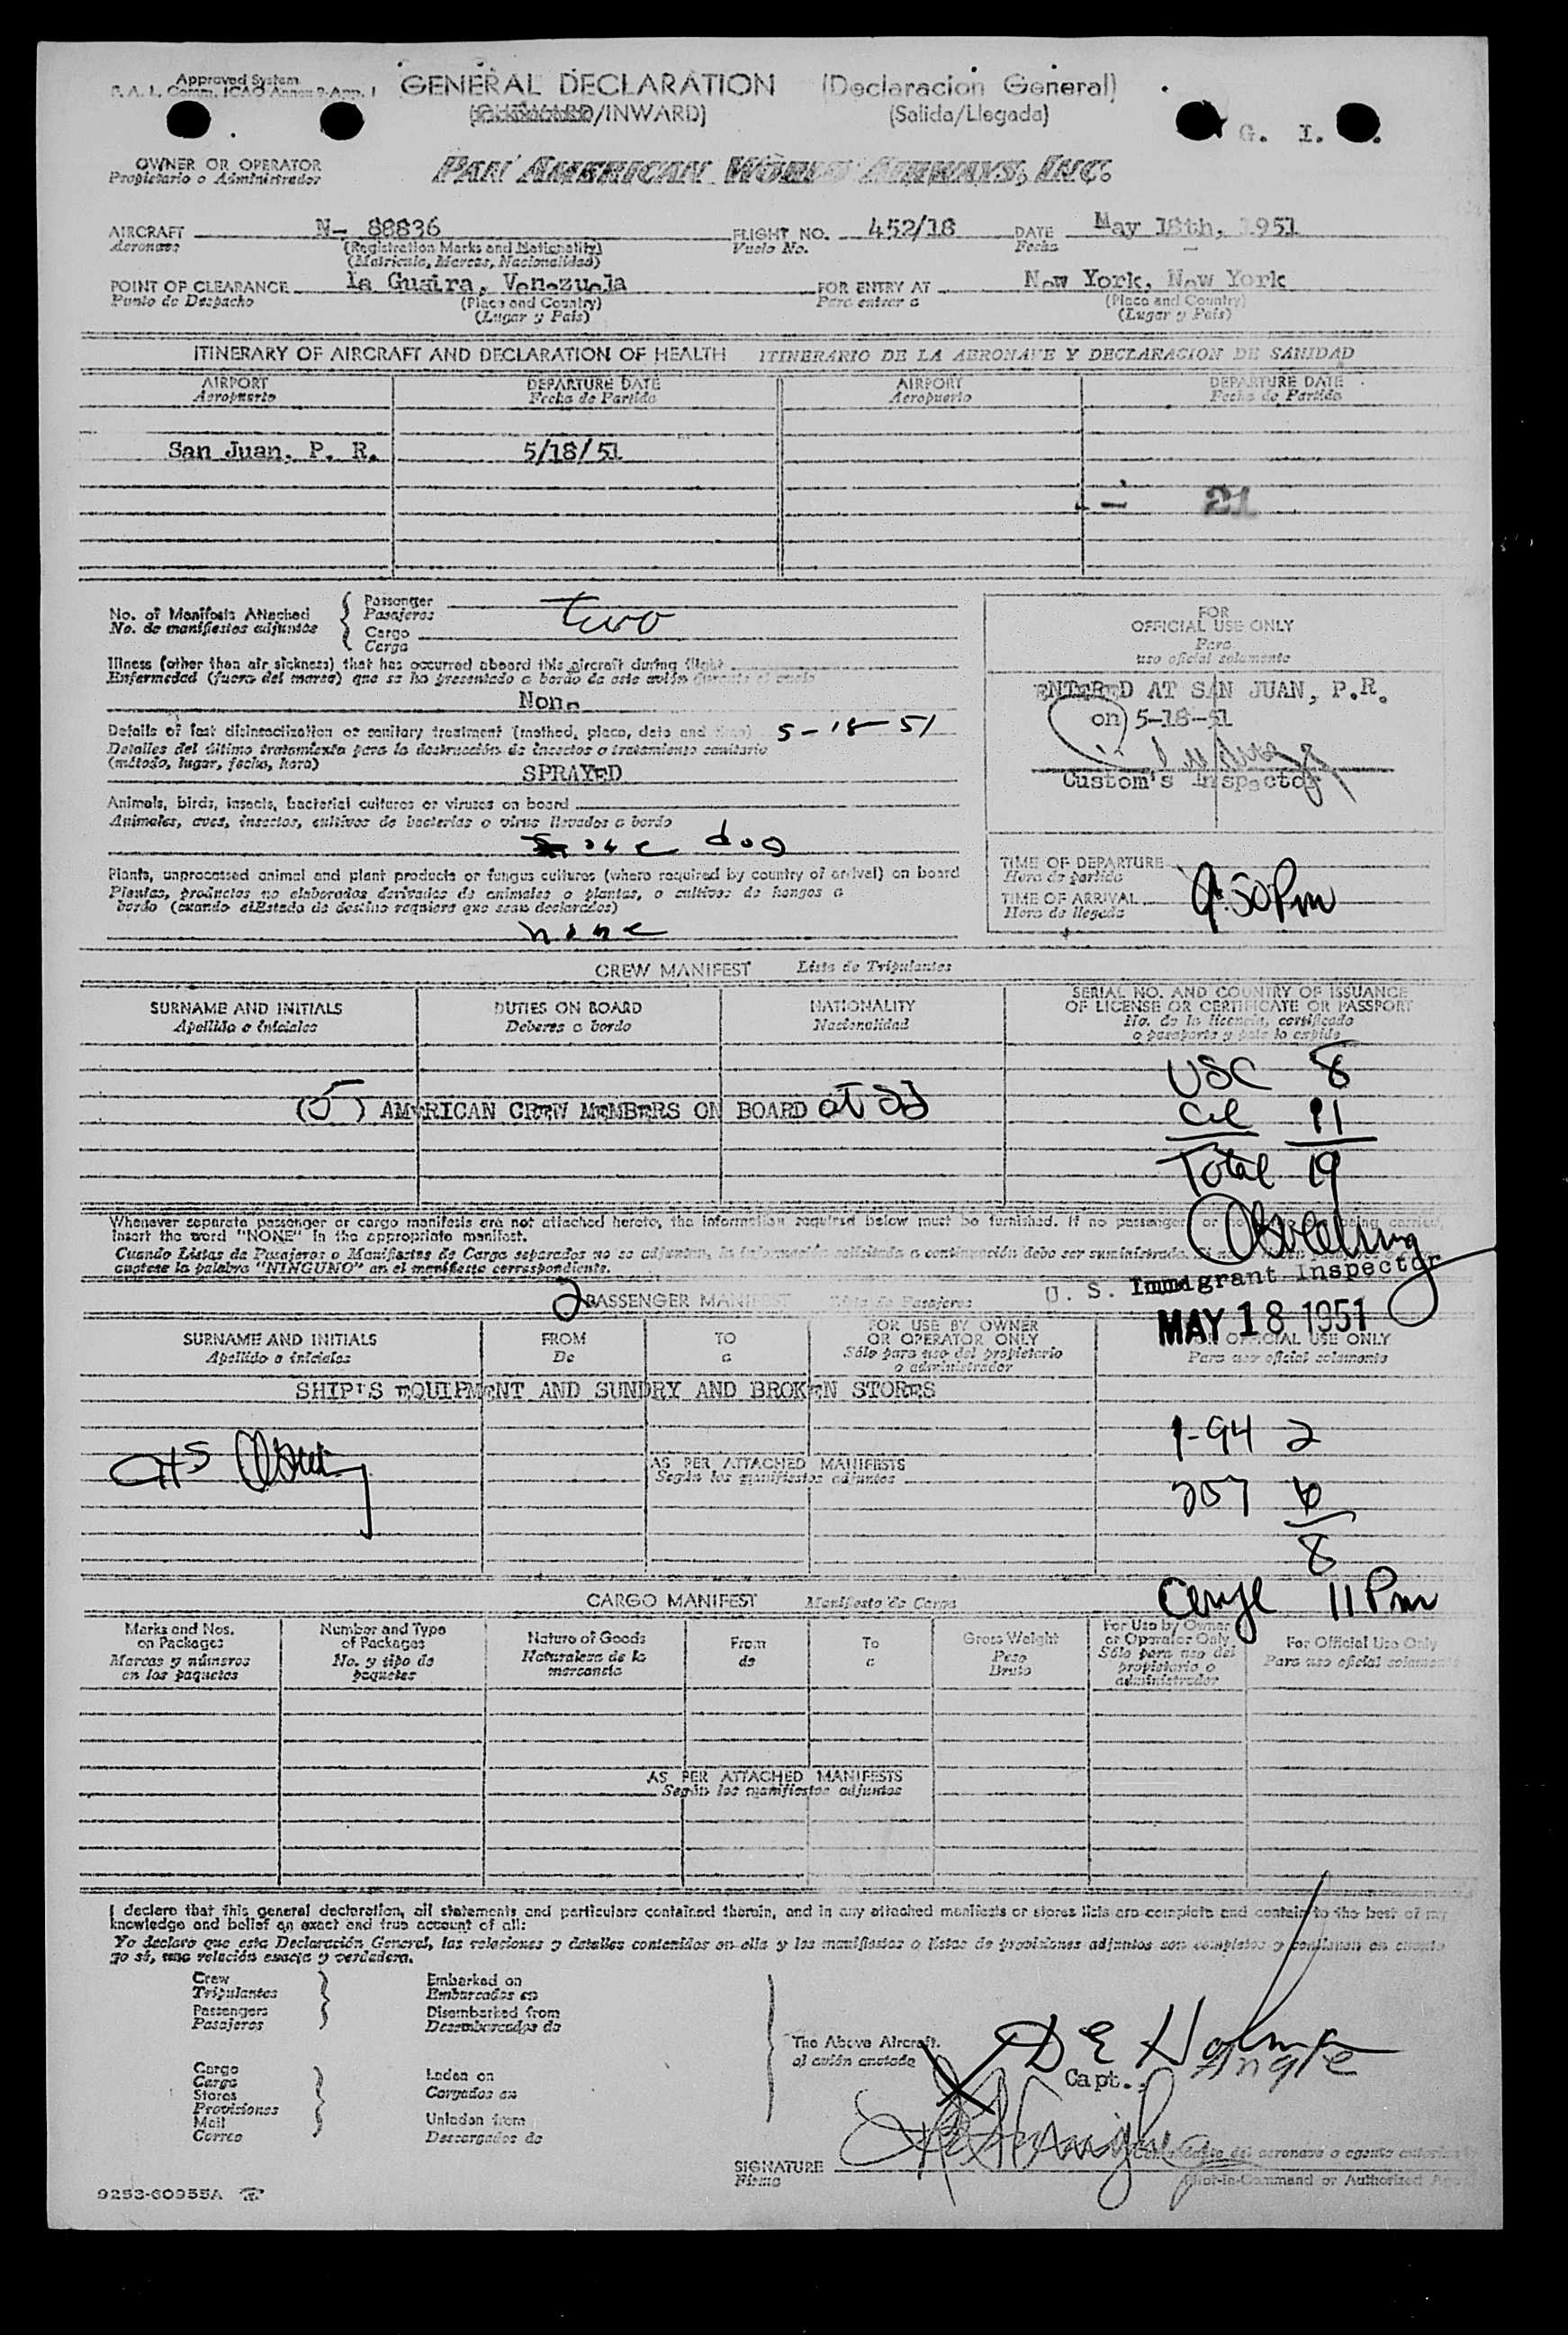 Approved System
P. A. L. Comm. ICAO Annex 9-App. 1
GENERAL DECLARATION (Declaracion General)
(OUTWARD/INWARD) (Salida/Llegada)
G. I.
OWNER OR OPERATOR
Propietario o Administrador
PAN AMERICAN WORLD AIRWAYS, INC.
AIRCRAFT N- 88836 FLIGHT NO. 452/18 DATE May 18th, 1951
Aeronave (Registration Marks and Nationality) Vuelo No. Fecha
(Matricula, Marcas, Nacionalidad)
POINT OF CLEARANCE la Guaira, Venezuela FOR ENTRY AT New York, New York
Punto de Despacho (Place and Country) Para entrar a (Place and Country)
(Lugar y Pais) (Lugar y Pais)
ITINERARY OF AIRCRAFT AND DECLARATION OF HEALTH ITINERARIO DE LA AERONAVE Y DECLARACION DE SANIDAD
AIRPORT DEPARTURE DATE AIRPORT DEPARTURE DATE
Aeropuerto Fecha de Partida Aeropuerto Fecha de Partida
San Juan, P. R. 5/18/51
21
No. of Manifests Attached
No. de manifiestos adjuntos
Passenger
Pasajeros
two
Cargo
Carga
Illness (other than air sickness) that has occurred aboard this aircraft during flight
Enfermedad (fuera del mareo) que se ha presentado a bordo de este avión durante el vuelo
None
Details of last disinsectization or sanitary treatment (method, place, date and time) 5-18-51
Detalles del último tratamiento para la destrucción de insectos o tratamiento sanitario
(método, lugar, fecha, hora)
SPRAYED
Animals, birds, insects, bacterial cultures or viruses on board
Animales, aves, insectos, cultivos de bacterias o virus llevados a bordo
one dog
Plants, unprocessed animal and plant products or fungus cultures (where required by country of arrival) on board
Plantas, productos no elaborados derivados de animales o plantas, o cultivos de hongos a
bordo (cuando elEstado de destino requiera que sean declarados)
none
FOR
OFFICIAL USE ONLY
Para
uso oficial solamente
ENTERED AT SAN JUAN, P.R.
on 5-18-51
Custom's Inspector
TIME OF DEPARTURE
Hora de partida
TIME OF ARRIVAL 9:50 Pm
Hora de llegada
CREW MANIFEST Lista de Tripulantes
SURNAME AND INITIALS DUTIES ON BOARD NATIONALITY SERIAL NO. AND COUNTRY OF ISSUANCE
OF LICENSE OR CERTIFICATE OR PASSPORT
Apellido e iniciales Deberes a bordo Nacionalidad No. de la licencia, certificado
o pasaporte y pais lo expide
USC 8
(5) AMERICAN CREW MEMBERS ON BOARD
11
Total 19
Whenever separate passenger or cargo manifests are not attached hereto, the information required below must be furnished. If no passenger or being carried,
insert the word "NONE" in the appropriate manifest.
Cuando Listas de Pasajeros o Manifiestos de Carga separados no se adjuntan, la información solicitada a continuación debe ser suministrada.
anótese la palabra "NINGUNO" en el manifiesto correspondiente.
U. S. Immigrant Inspector
MAY 18 1951
2 PASSENGER MANIFEST Lista de Pasajeros
SURNAME AND INITIALS FROM TO FOR USE BY OWNER
OR OPERATOR ONLY FOR OFFICIAL USE ONLY
Apellido e iniciales De a Sólo para uso del propietario
o administrador Para uso oficial solamente
SHIP'S EQUIPMENT AND SUNDRY AND BROKEN STORES
1-94 2
AS PER ATTACHED MANIFESTS
Según los manifiestos adjuntos
257 6
8
11 Pm
CARGO MANIFEST Manifiesto de Carga
Marks and Nos.
on Packages
Marcas y números
en los paquetes
Number and Type
of Packages
No. y tipo de
paquetes
Nature of Goods
Naturaleza de la
mercancia
From
de
To
a
Gross Weight
Peso
Bruto
For Use by Owner
or Operator Only
Sólo para uso del
propietario o
administrador
For Official Use Only
Para uso oficial solamente
AS PER ATTACHED MANIFESTS
Según los manifiestos adjuntos
I declare that this general declaration, all statements and particulars contained therein, and in any attached manifests or stores lists are complete and contain to the best of my
knowledge and belief an exact and true account of all:
Yo declaro que esta Declaración General, las relaciones y detalles contenidos en ella y los manifiestos o listas de provisiones adjuntos son completos y contienen en cuanto
yo sé, una relación exacta y verdadera.
Crew
Tripulantes
Passengers
Pasajeros
Embarked on
Embarcados en
Disembarked from
Desembarcados de
Cargo
Carga
Stores
Provisiones
Mail
Correo
Laden on
Cargados en
Unladen from
Descargados de
The Above Aircraft.
al avión anotado
D E
Capt.
SIGNATURE
Firma
del aeronave o agente
Pilot-in-Command or Authorized
9253-60955A